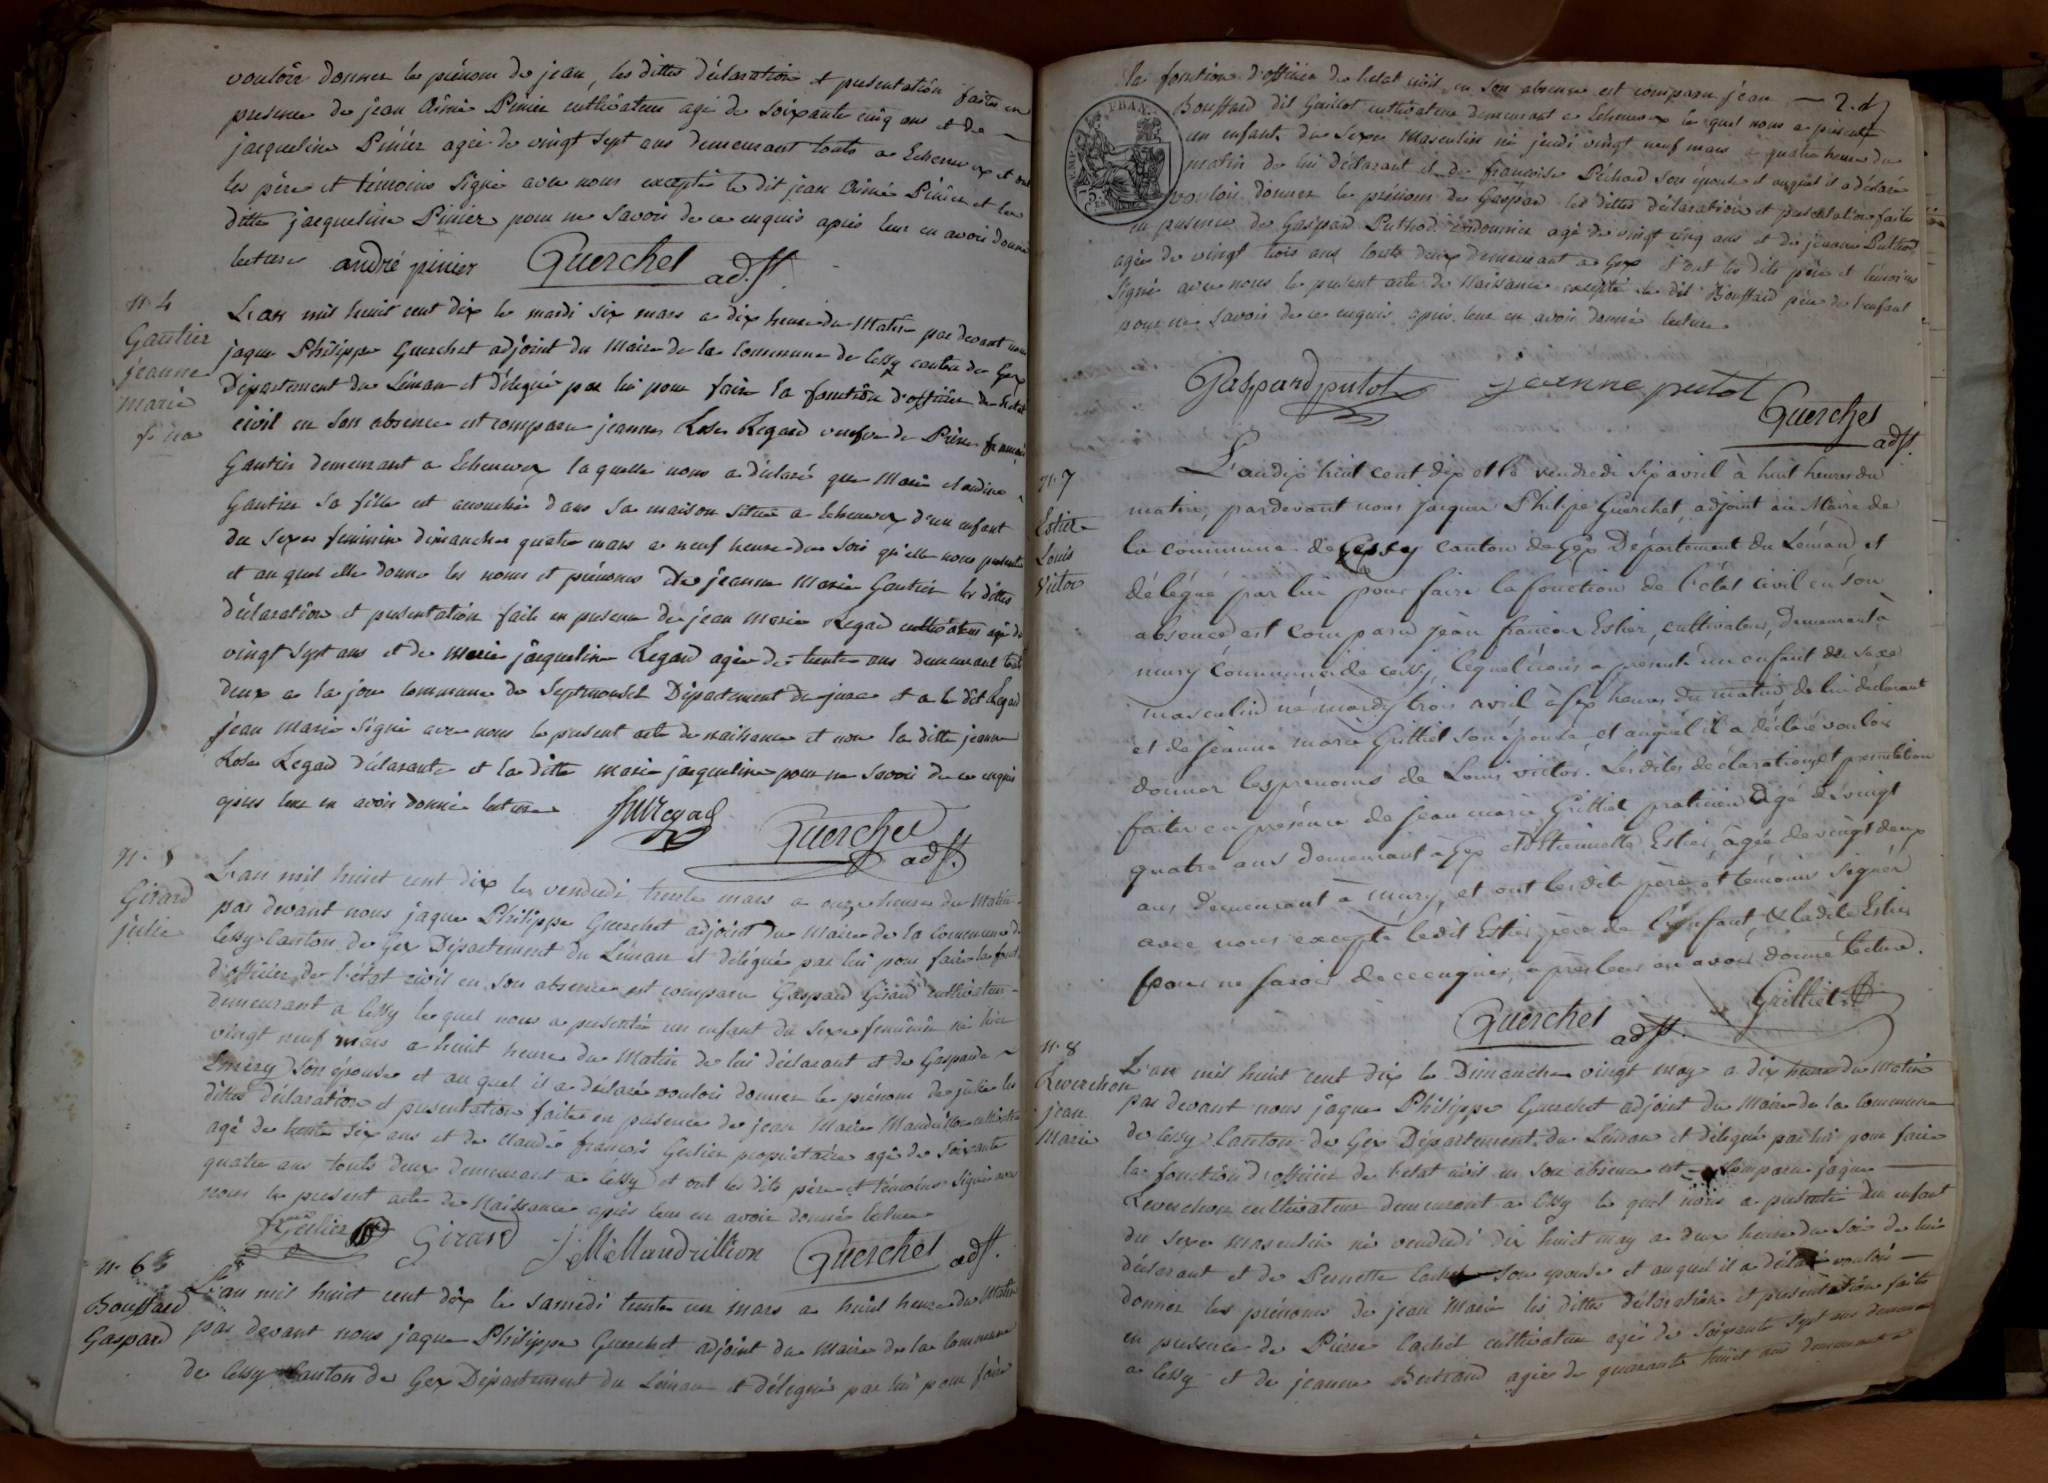 vouloir donner le prénom de jean, les dittes déclaration et presentation faites en
presence de jean Aimé Pinier cultivateur agé de soixante cinq ans et de
jacqueline Pinier agée de vingt sept ans demeurant touts a Echenevex et ont
les père et témoins signé avec nous excepté le dit jean Aimé Pinier et la
ditte jacqueline Pinier pour ne savoir de ce enquis après leur en avoir donné
lecture andré pinier Guerchet adjt.
n. 4
Gautier
jeanne
marie
L'an mil huit cent dix le mardi six mars a dix heure du Matin par devant nous
jaque Philippe Guerchet adjoint du Maire de la Commune de Cessy canton de Gex
Département du Léman et délegué par lui pour faire la fonction d'officier de l'etat
civil en son absence est comparu jeanne Rose Regard veufve de Pierre françois
Gautier demeurant a Echenevex laquelle nous a déclaré que Marie Claudine
Gautier sa fille est accouchée dans sa maison située a Echenevex d'un enfant
du sexe feminin dimanche quatre mars a neuf heure du soir qu'elle nous presente
et auquel elle donne les noms et prénoms de jeanne Marie Gautier les dittes
déclaration et presentation faite en presence de jean Marie Regad cultivateur agé de
vingt sept ans et de marie jacqueline Regard agée de trente ans demeurant touts
deux a la joux Commune de Septmoncel Département du jura et a le dit Regad
jean marie signé avec nous le present acte de naissance et non la ditte jeanne
Rose Regad déclarante et la ditte marie jacqueline pour ne savoir de ce enquis
après leur en avoir donné lecture JMRegad Guerchet adjt.
n. 5
Girard
julie
L'an mil huit cent dix le vendredi trente mars a onze heure du Matin
par devant nous jaque Philippe Guerchet adjoint du Maire de la Commune de
Cessy Canton de Gex Département du Léman et délégué par lui pour faire la fonct.
d'officier de l'état civil en son absence est comparu Gaspard Girard cultivateur
demeurant a Cessy lequel nous a presenté un enfant du sexe feminin né hier
vingt neuf mars a huit heure du Matin de lui déclarant et de Gasparde
Emery son épouse et auquel il a déclaré vouloir donner le prénom de julie les
dittes déclaration et presentation faite en presence de jean Marie Mandrillon cultivateur
agé de trente six ans et de claude françois Gerlier propriétaire agé de soixante
quatre ans touts deux demeurant a Cessy et ont les dits père et témoins signé avec
nous le present acte de Naissance après leur en avoir donné lecture
Gerlier Girard JMMandrillion Guerchet adjt.
n. 6
Bouffard
Gaspard
L'an mil huit cent dix le samedi trente un mars a huit heure du Matin
par devant nous jaque Philippe Guerchet adjoint du Maire de la Commune
de Cessy Canton de Gex Département du Léman et délegué par lui pour faire
la fonction d'officier de l'etat civil en son absence est comparu jean
Bouffard dit Guillot cultivateur demeurant a Echenevex lequel nous a presenté
un enfant du sexe Masculin né jeudi vingt neuf mars a quatre heure du
matin de lui déclarant et de françoise Péchoud son épouse et auquel il a déclaré
vouloir donner le prénom de Gaspard les dittes déclaration et presentation faite
en presence de Gaspard Puthod cordonnier agé de vingt cinq ans et de jeanne Puthod
agée de vingt trois ans touts deux demeurant a Gex et ont les dits père et témoins
signé avec nous le present acte de Naissance excepté le dit Bouffard père de l'enfant
pour ne savoir de ce enquis après leur en avoir donné lecture
Gaspard putot jeanne putot
Guerchet adjt.
n. 7
Estier
Louis
Victor
L'an dix huit cent dix et le vendredi six avril à huit heures du
matin, pardevant nous jaques Philipe Guerchet, adjoint au Maire de
la commune de Cessy canton de Gex Département du Léman, et
délégué par lui pour faire la fonction de l'état civil en son
absence est comparu jean françois Estier, cultivateur, demeurant à
mury commune de cessy, lequel nous a présenté un enfant du sexe
masculin né mardy trois avril à six heures du matin de lui déclarant
et de jeanne marie Grilliet son épouse et auquel il a déclaré vouloir
donner les prenoms de Louis victor. Les dites déclaration et presentation
faites en présence de jean marie Grilliet praticien agé de vingt
quatre ans demeurant à Gex et d'Etiennette Estier, agée de vingt deux
ans demeurant à mury, et ont les dits père et témoins signés
avec nous excepté le dit Estier père de l'enfant, & la dite Estier
pour ne savoir de ce enquis, après leur en avoir donné lecture.
Guerchet adjt. Grilliet
n. 8
Levrechon
jean
Marie
L'an mil huit cent dix le Dimanche vingt may a dix heure du Matin
par devant nous jaque Philippe Guerchet adjoint du Maire de la Commune
de Cessy Canton de Gex Département du Léman et délegué par lui pour faire
la fonction d'officier de l'etat civil en son absence est Comparu jaque
Levrechon cultivateur demeurant a Cessy lequel nous a presenté un enfant
du sexe masculin né vendredi dix huit may a deux heure du soir de lui
déclarant et de Pernette Cachet son epouse et auquel il a déclaré vouloir
donner les prénoms de jean Marie les dittes déclaration et presentation faite
en presence de Pierre Cachet cultivateur agé de soixante sept ans demeurant
a Cessy et de jeanne Bertrand agée de quarante huit ans demeurant a